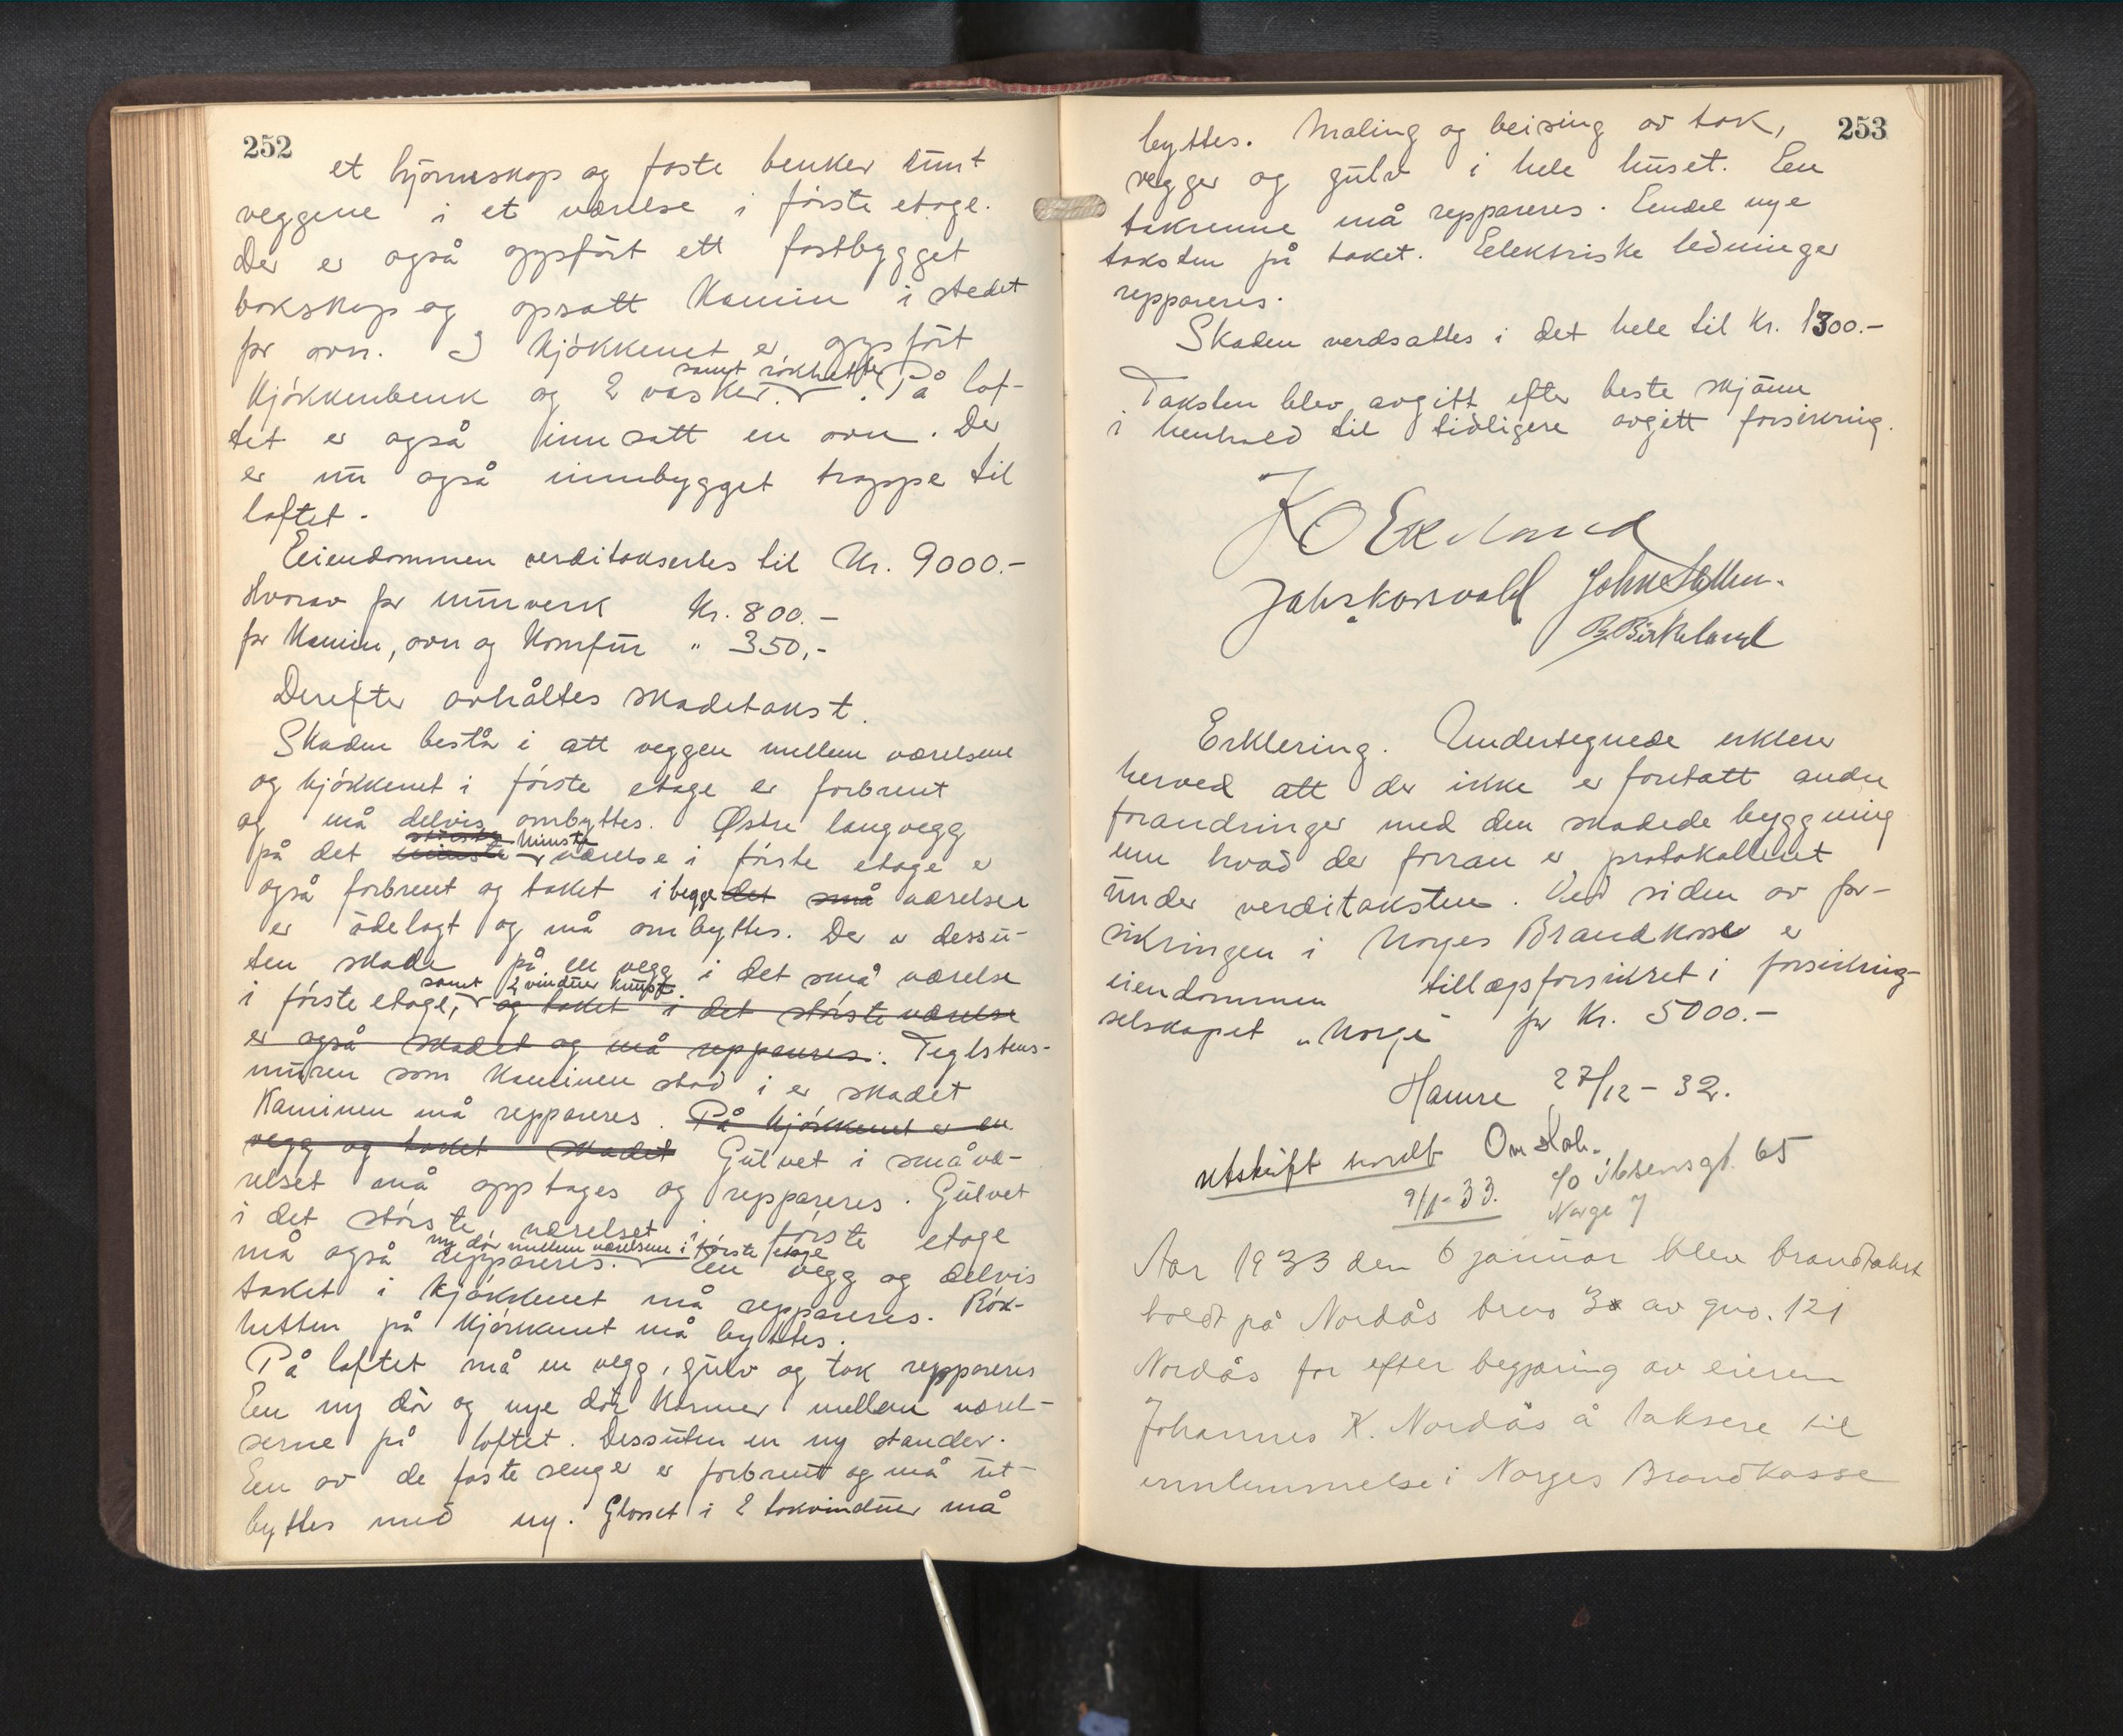 252
et hjörneskap og faste benker runt
veggene i et værelse i förste etage.
Der er også oppfört ett fastbygget
bokskap og opsatt Kamin i stedet
for ovn. I Kjökkenet er oppfört
samt rökhetter
Kjökkenbenk og 2 vasker. På lof-
tet er også innsatt en ovn. Der
er nu også innbygget trappe til
loftet.
Eiendommen verditakseres til Kr. 9000.-
Hvorav for murverk Kr. 800.-
for Kamin, ovn og Komfur " 350,-
Derefter avhåltes skadetakst.
Skaden består i att veggen mellem værelsene
og kjökkenet i förste etage er forbrent
og må delvis ombyttes. Østre langvegg
største minste
på det minste værelse i förste etage er
også forbrent og taket i begge det små værelser
er ödelagt og må ombyttes. Der er dessu-
ten skade på en vegg i det små værelse
samt 2 vinduer knust.
i förste etage, og taket i det störste værelse
er også skadet og må reppareres. Teglstens-
muren som Kaminen stod i er skadet
Kaminen må reppareres. På kjökkenet er en
vegg og taket skadet Gulvet i små væ-
relset må opptages og reppareres. Gulvet
i det störste værelset i förste etage
ny dör mellem værelsene i förste etage
må også reppareres. En vegg og delvis
taket i Kjökkenet må reppareres. Rök-
hetten på Kjökkenet må byttes.
På loftet må en vegg, gulv og tak reppareres
Een ny dör og nye dör Karmer mellem værel-
serne på loftet. Dessuten en ny stander.
Een av de faste senger er forbrent og må ut-
byttes med ny. Glasset i 2 takvinduer må
253
byttes. Maling og beising av tak,
vegger og gulv i hele huset. Een
takrenne må reppareres. Eendel nye
taksten på taket. Eelektriske ledninger
reppareres.
Skaden verdsattes i det hele til Kr. 1300.-
Taksten blev avgitt efter beste skjönn
i henhold til tidligere avgitt forsikring.
K O Ekeland
Joh. Korsvold John
B. Birkeland
Erklering. Undertegnede erklerer
herved att der ikke er foretatt andre
forandringer med den skadede byggning
enn hvad der forran er protokolleret
under verditaksten. Ved siden av for-
sikringen i Norges Brandkasse er
eiendommen tillægsforsikret i forsikring-
selskapet "Norge" for Kr. 5000.-
Hamre 27/12 - 32.
utskrift sendt
9/1-33. c/o Ibsensgt. 65
Norge
Aar 1933 den 6 januar blev brandtakst
holdt på Nordås brno 3 av gno. 121
Nordås for efter begjæring av eieren
Johannes K. Nordås å taksere til
innlemmelse i Norges Brandkasse